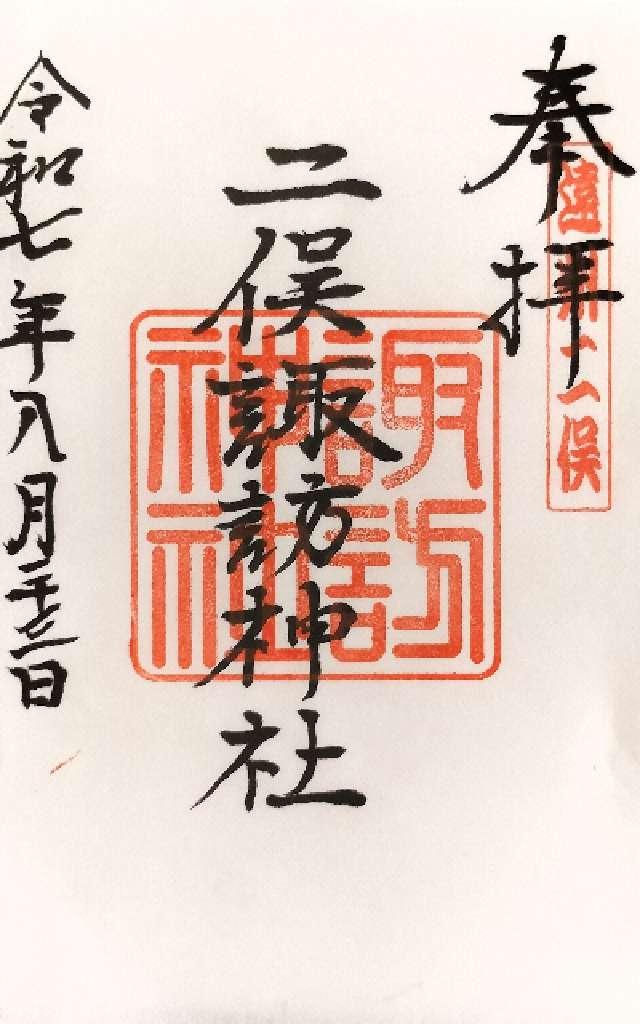 奉拝
遠州二俣
二俣諏訪神社
諏訪神社
令和七年八月二十三日